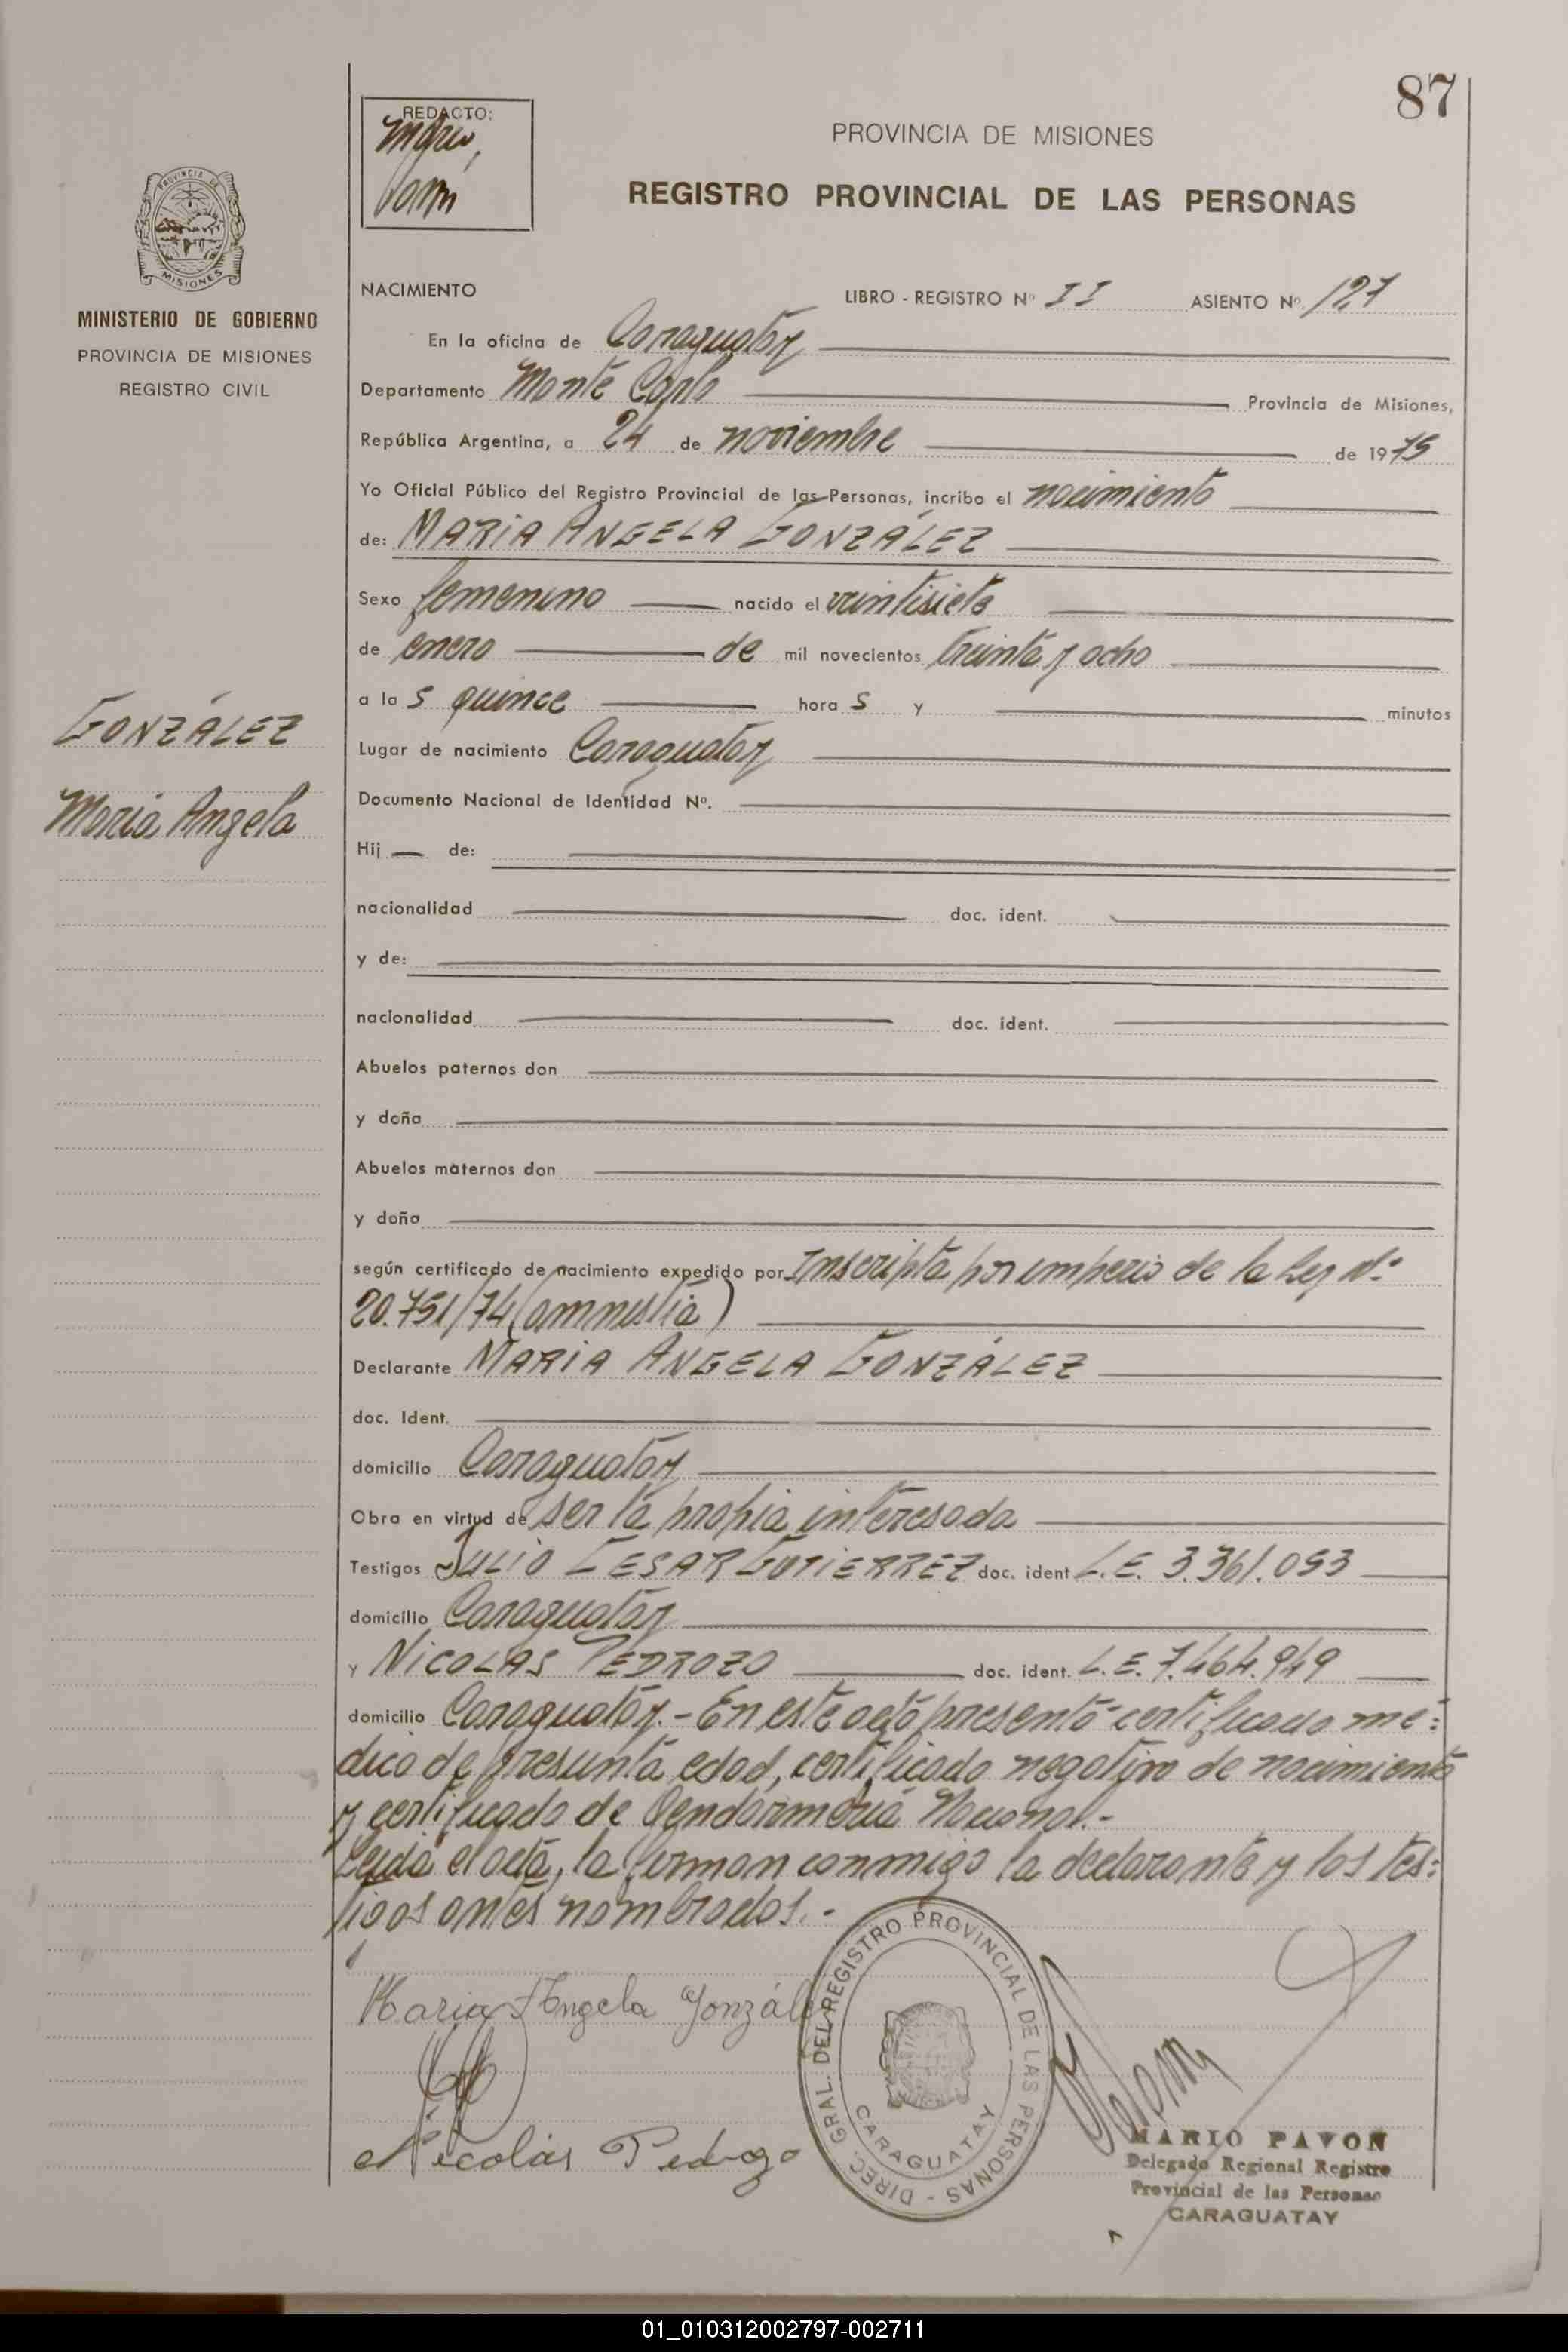 87
REDACTO:
PROVINCIA DE MISIONES
REGISTRO PROVINCIAL DE LAS PERSONAS
PROVINCIA DE
MISIONES
MINISTERIO DE GOBIERNO
PROVINCIA DE MISIONES
REGISTRO CIVIL
NACIMIENTO LIBRO - REGISTRO Nº II ASIENTO Nº 127
En la oficina de Caraguatay
Departamento Monte Carlo Provincia de Misiones,
República Argentina, a 24 de noviembre de 1975
Yo Oficial Público del Registro Provincial de las Personas, incribo el nacimiento
de: MARIA ANGELA GONZÁLEZ
Sexo femenino nacido el veintisiete
de enero de mil novecientos treinta y ocho
a la s quince hora s y minutos
GONZÁLEZ
Lugar de nacimiento Caraguatay
María Angela
Documento Nacional de Identidad Nº.
Hij de:
nacionalidad doc. ident.
y de:
nacionalidad doc. ident.
Abuelos paternos don
y doña
Abuelos maternos don
y doña
según certificado de nacimiento expedido por Inscripta por imperio de la Ley Nº
20.751/74 (amnistia)
Declarante MARIA ANGELA GONZÁLEZ
doc. Ident.
domicilio Caraguatay
Obra en virtud de ser la propia interesada
Testigos JULIO CESAR GUTIERREZ doc. ident L.E. 3.361.053
domicilio Caraguatay
y NICOLAS PEDROZO doc. ident. L.E. 7.464.949
domicilio Caraguatay.- En este acto presentó certificado mé=
dico de presunta edad, certificado negativo de nacimiento
y certificado de Gendarmería Nacional.-
Leida el acta, la firman conmigo la declarante y los tes=
tigos antes nombrados.-
Maria Angela Gonzál
Nicolás Pedrozo
DIREC. GRAL. DEL REGISTRO PROVINCIAL DE LAS PERSONAS -
CARAGUATAY
MARIO PAVON
Delegado Regional Registro
Provincial de las Personas
CARAGUATAY
01_010312002797-002711